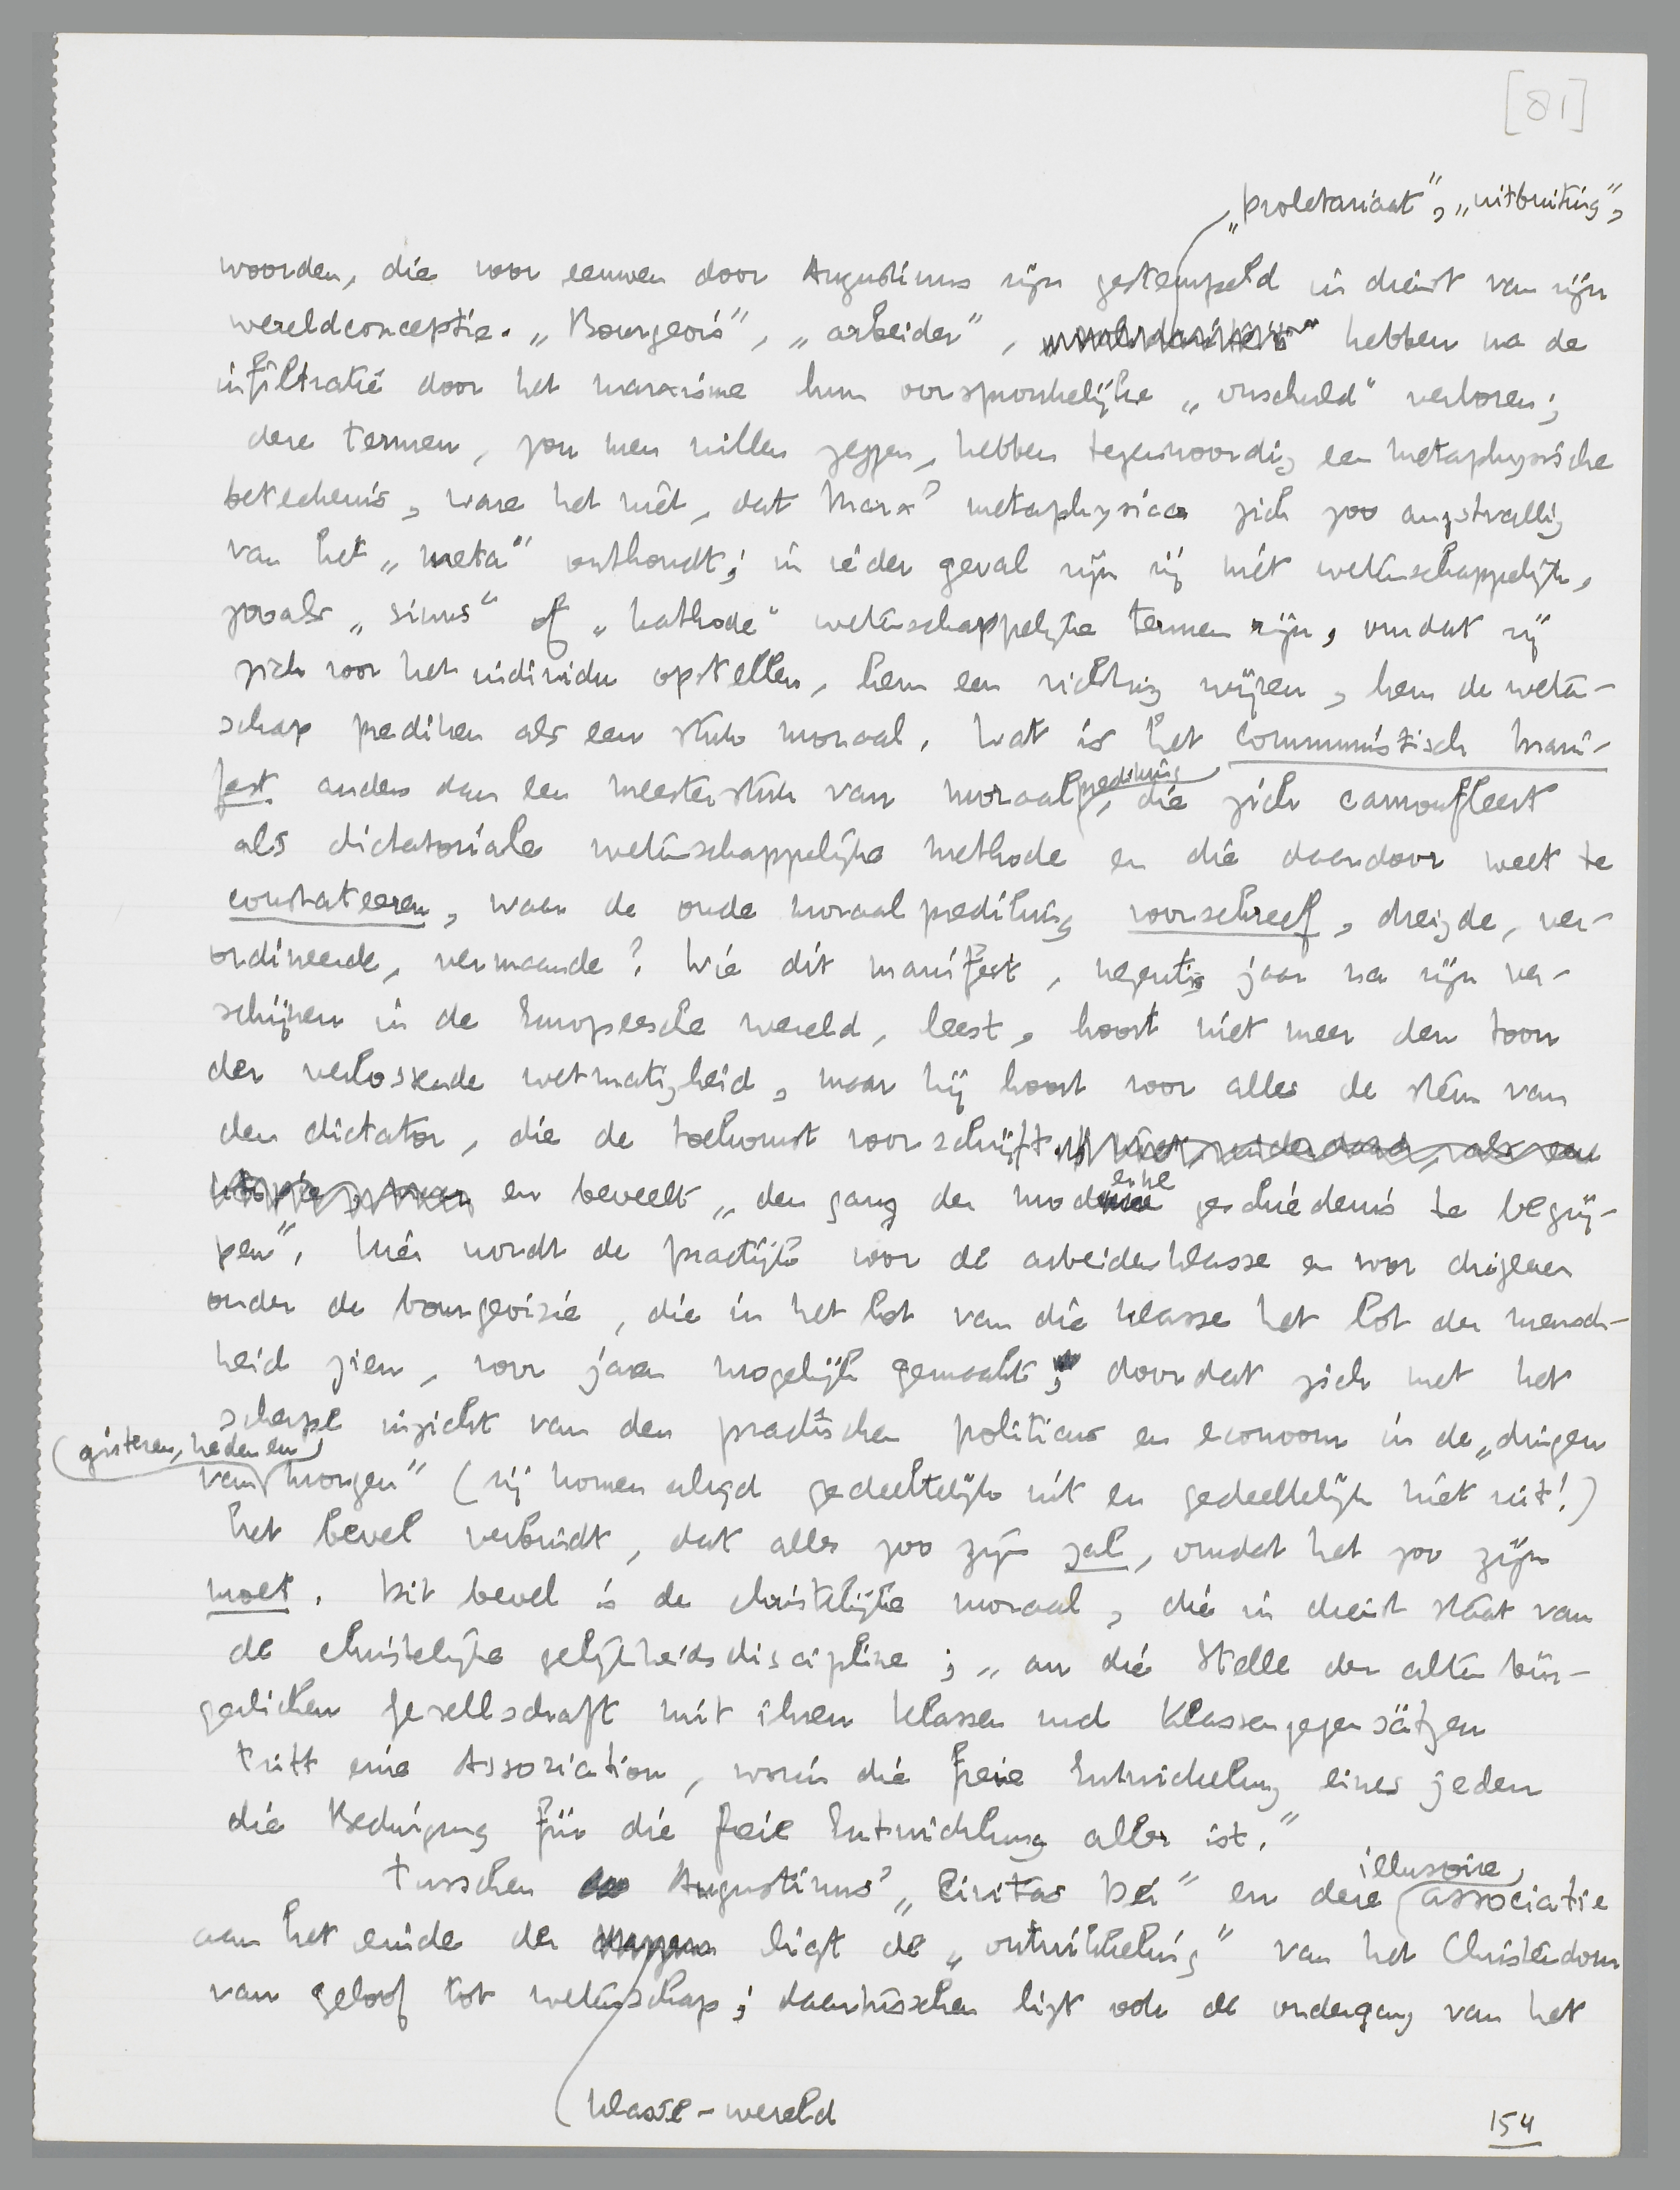 [81]
„proletariaat", „uitbuiting",
woorden, die voor eeuwen door Augustinus zijn gestempeld in dienst van zijn
wereldconceptie. „Bourgeois", „arbeider", hebben na de
infiltratie door het marxisme hun oorspronkelijke „onschuld" verloren;
deze termen, zou men willen zeggen, hebben tegenwoordig een metaphysische
beteekenis, ware het niet, dat Marx' metaphysica zich zoo angstvallig
van het „meta" onthoudt; in ieder geval zijn zij niet wetenschappelijk,
zooals „sinus" of „kathode" wetenschappelijke termen zijn, omdat zij
zich voor het individu opstellen, hem een richting wijzen, hem de weten-
schap prediken als een stuk moraal. Wat is het communistisch mani-
fest anders dan een meesterstuk van moraalprediking, die zich camoufleert
als dictatoriale wetenschappelijke methode en die daardoor weet te
constateeren, waar de oude moraalprediking voorschreef, dreigde, ver-
ordineerde, vermaande? Wie dit manifest, negentig jaar na zijn ver-
schijnen in de Europeesche wereld, leest, hoort niet meer den toon
der verlossende wetmatigheid, maar hij hoort voor alles de stem van
den dictator, die de toekomst voorschrijft niet, inderdaad, als een
utopie, maar en beveelt „den gang der moderne geschiedenis te begrij-
pen". Hier wordt de practijk voor de arbeidersklasse en voor diegenen
onder de bourgeoisie, die in het lot van die klasse het lot der mensch-
heid zien, voor jaren mogelijk gemaakt, doordat zich met het
scherpe inzicht van den practischen politicus en econoom in de „dingen
(gisteren, heden en)
van morgen" (zij komen altijd gedeeltelijk uit en gedeeltelijk niet uit!)
het bevel verbindt, dat alles zoo zijn zal, omdat het zoo zijn
moet. Dit bevel is de christelijke moraal, die in dienst staat van
de christelijke gelijkheidsdiscipline; „an die Stelle der alten bür-
gerlichen Gesellschaft mit ihren Klassen und Klassengegensätzen
tritt eine Assoziation, worin die freie Entwickelung eines jeden
die Bedingung für die freie Entwicklung aller ist."
Tusschen Augustinus' „Civitas Dei" en deze illusoire associatie
aan het einde der ligt de „ontwikkeling" van het Christendom
van geloof tot wetenschap; daartusschen ligt ook de ondergang van het
klasse-wereld
154